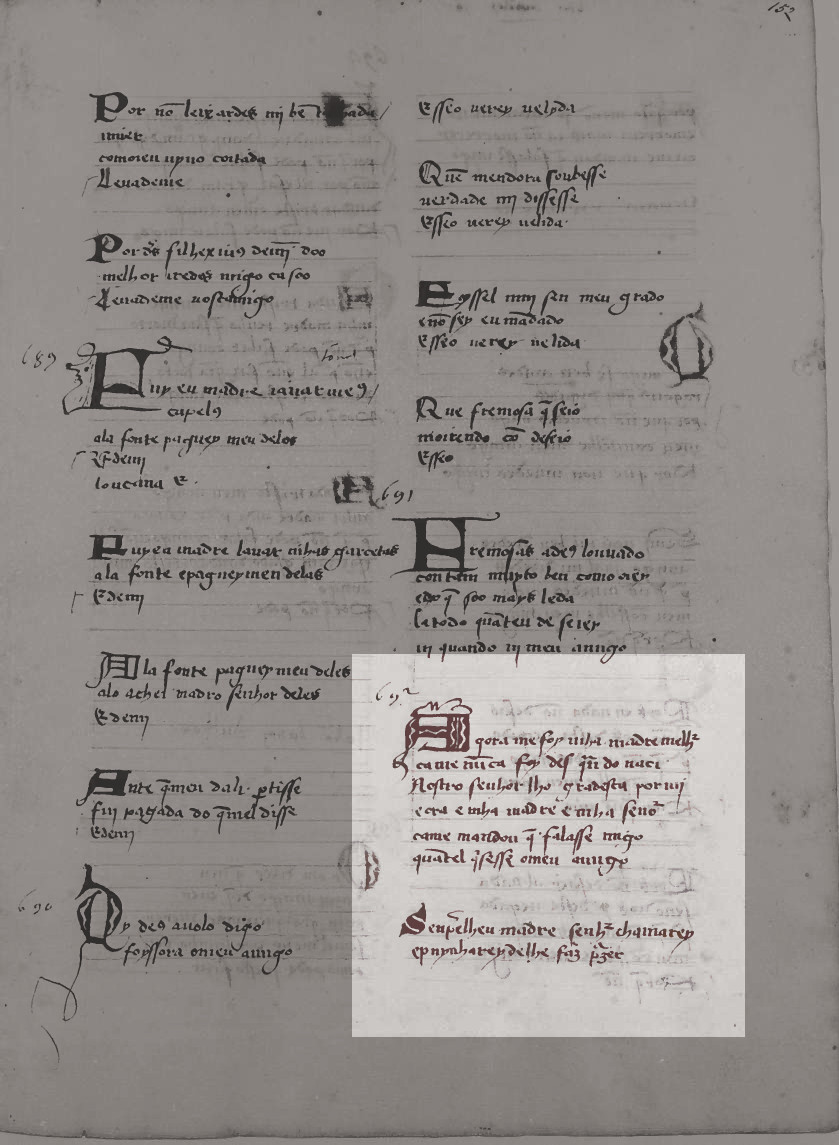 152
Por nõ leixardes mi bẽ
mier
comoieu uyuo coitada
Leuademe
Por ds̃ filhexiuꝯ demĩ doo
melhor iredes migo ca soo
Leuademe uostamigo
689
Fuy eu madre lauar meꝯ
capelꝯ
ala fonte paguey meu delos
E demj
louçana E.
Fuy eu madre lauar mhas garcetas
ala fonte epagueymeu delas
E demj
A la fonte paguey meu deles
alo achei madro senhor deles
E demj
Ante q̃meu dali ꝑtisse
fui pagada do q̃mel disse
E demj
690
Oy deꝯ auolo digo
foyssora omeu amigo
Esseo uerey uelyda
Quẽ mendora soubesse
uerdade mj dissesse
Esseo uerey uelida
Foyssel mj sen meu grado
enõ sey eu mãdado
Esseo uerey uelida
Que fremosa q̃ seio
moirendo cõ deseio
Esseo
691
Fremosas adeꝯ louuado
con tem muyto ben como oiey
edo q̃ soo mays leda
ca todo quãteu deseiey
ui quando ui meu amigo
692
Agora me foy mha madre melhr̃
ca me nũca foy des q̃n do naci
Nostro senhor lho gradesca por mj
e ora e mha madre e mha senõr
came mandou q̃ falasse migo
quãtel q̃sesse omeu amigo
Senp̃ lheu madre senhr̃ chamarey
epunharey delhe faz̃ p̃zer